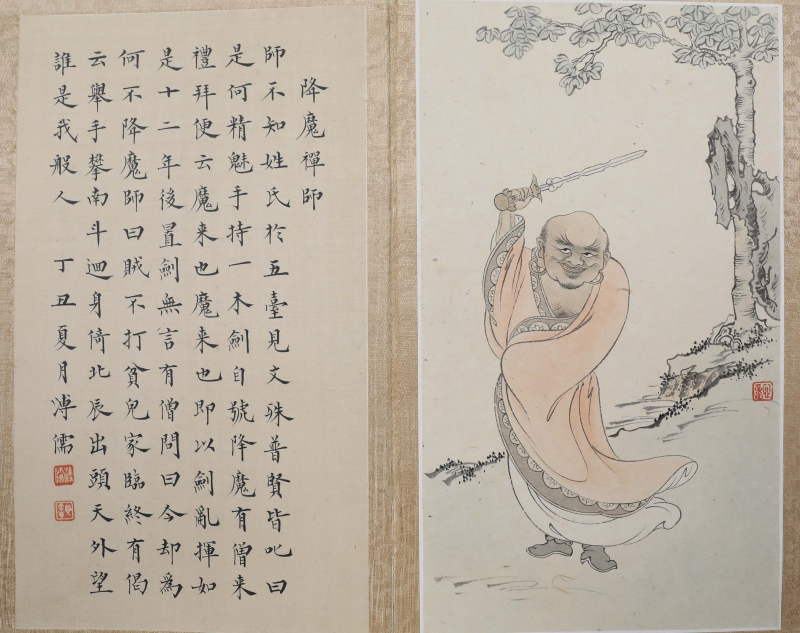 降魔禪師
師不知姓氏於五臺見文殊普賢皆叱曰
是何精魅手持一木劍自號降魔有僧来
禮拜便云魔来也魔来也即以劍亂揮如
是十二年後置劍無言有僧問曰今却為
何不降魔師曰賊不打貧兒家臨終有偈
云舉手攀南斗迴身倚北辰出頭天外望
誰是我般人 丁丑夏月溥儒